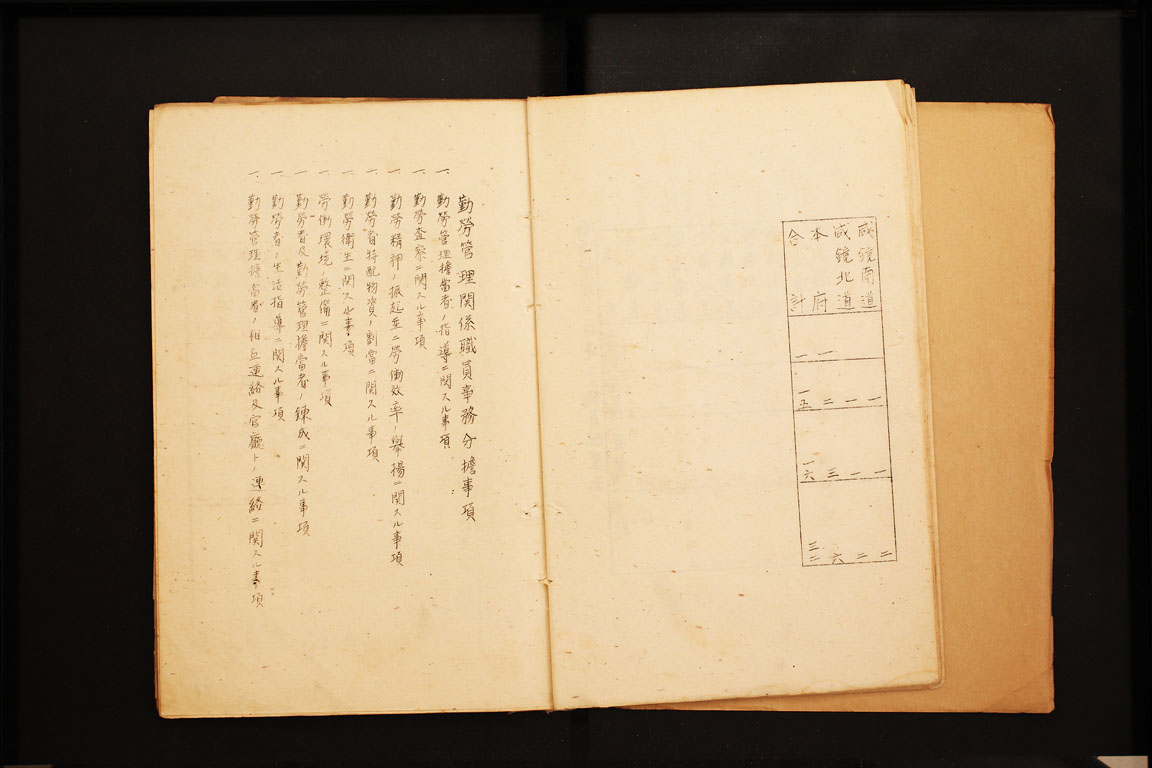 咸鏡南道 一 一 二
咸鏡北道 一 一 二
本府 一 二 三 六
合計 一 一五 一六 三二
勤勞管理関係職員事務分擔事項
一、勤勞管理擔當者ノ指導ニ関スル事項
一、勤勞査察ニ関スル事項
一、勤勞精神ノ振起並ニ勞働效率ノ擧揚ニ関スル事項
一、勤勞者特配物資ノ割當ニ関スル事項
一、勤勞衛生ニ関スル事項
一、勞働環境ノ整備ニ関スル事項
一、勤勞者及勤勞管理擔當者ノ錬成ニ関スル事項
一、勤勞者ノ生活指導ニ関スル事項
一、勤勞管理擔當者ノ相互連絡及官廳トノ連絡ニ関スル事項